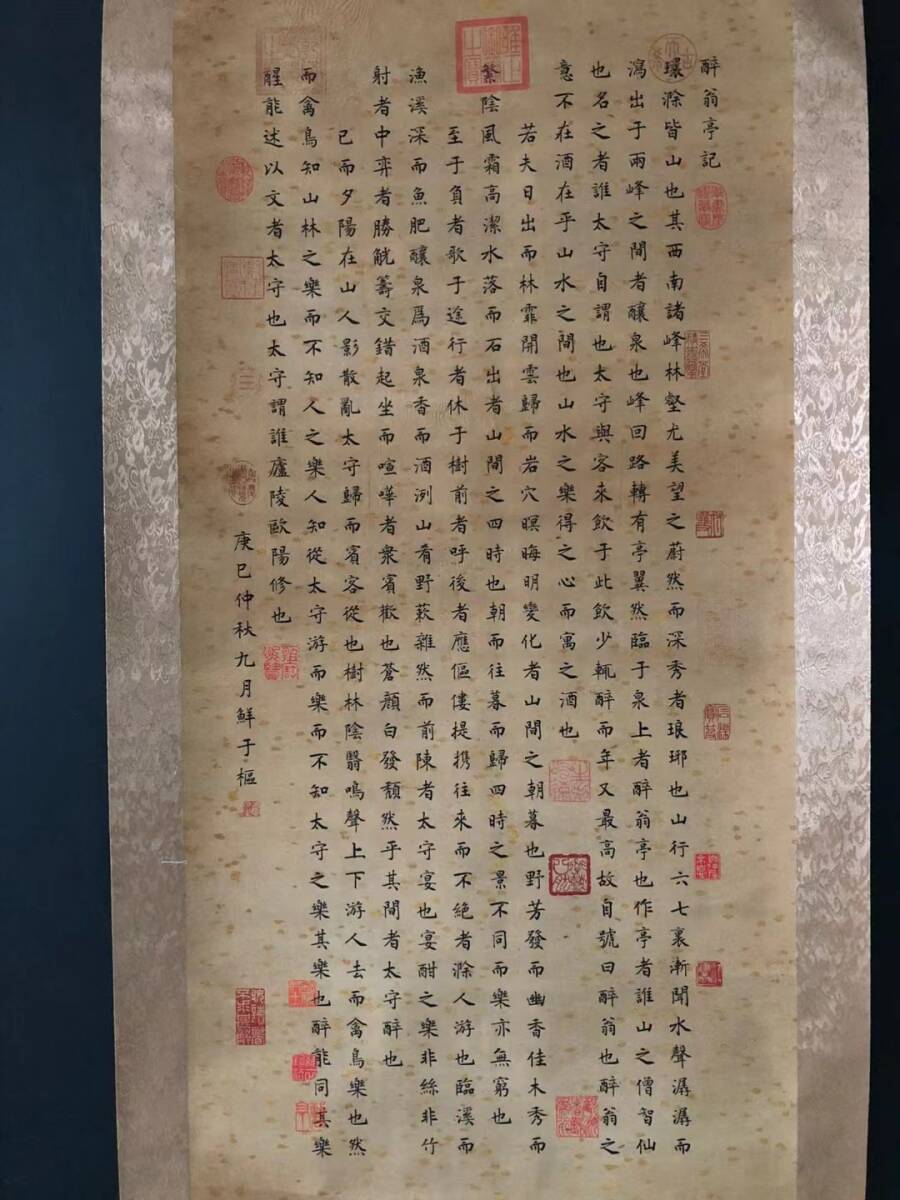 醉翁亭記
環滁皆山也其西南諸峰林壑尤美望之蔚然而深秀者琅琊也山行六七裏漸聞水聲潺潺而
瀉出于兩峰之間者釀泉也峰回路轉有亭翼然臨于泉上者醉翁亭也作亭者誰山之僧智仙
也名之者誰太守自謂也太守與客來飲于此飲少輒醉而年又最高故自號曰醉翁也醉翁之
意不在酒在乎山水之間也山水之樂得之心而寓之酒也
若夫日出而林霏開雲歸而岩穴暝晦明變化者山間之朝暮也野芳發而幽香佳木秀而
繁陰風霜高潔水落而石出者山間之四時也朝而往暮而歸四時之景不同而樂亦無窮也
至于負者歌于途行者休于樹前者呼後者應傴僂提携往來而不絕者滁人游也臨溪而
漁溪深而魚肥釀泉爲酒泉香而酒洌山肴野蔌雜然而前陳者太守宴也宴酣之樂非絲非竹
射者中弈者勝觥籌交錯起坐而喧嘩者衆賓歡也蒼顏白發頹然乎其間者太守醉也
已而夕陽在山人影散亂太守歸而賓客從也樹林陰翳鳴聲上下游人去而禽鳥樂也然
而禽鳥知山林之樂而不知人之樂人知從太守游而樂而不知太守之樂其樂也醉能同其樂
醒能述以文者太守也太守謂誰廬陵歐陽修也
庚巳仲秋九月鮮于樞